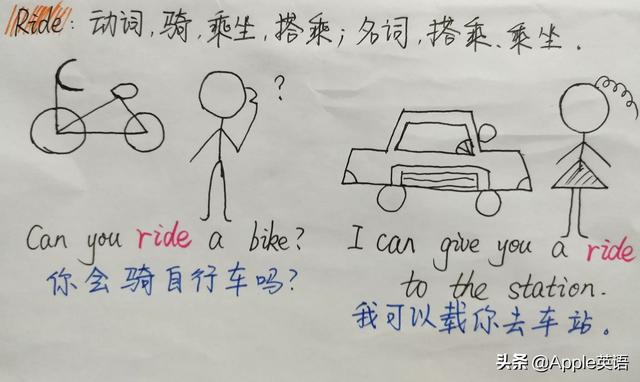 Ride: 动词,骑,乘坐,搭乘;名词,搭乘、乘坐.
?
Can you ride a bike?
你会骑自行车吗?
I can give you a ride
to the station.
我可以载你去车站。
头条 @Apple英语